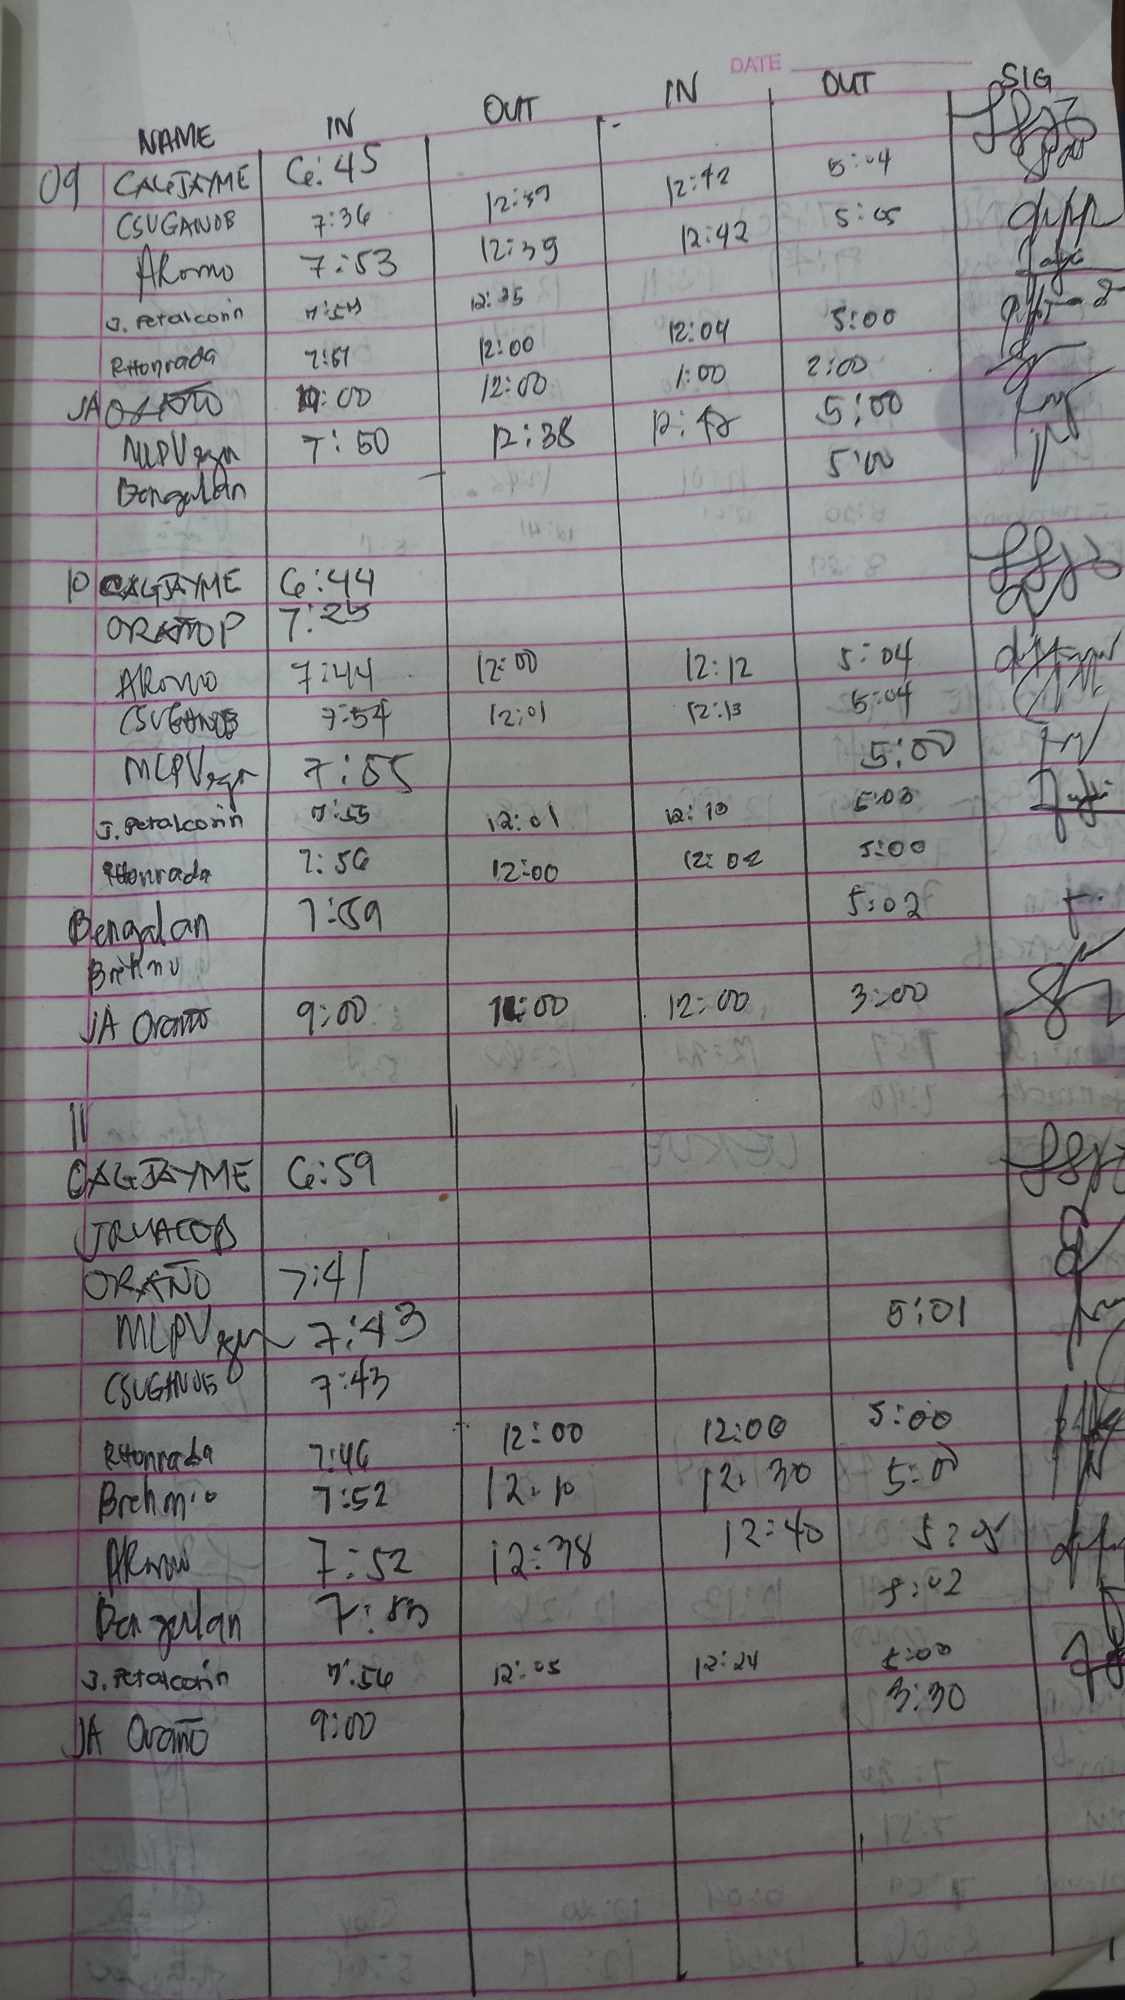 DATE
NAME IN OUT IN OUT SIG
09 CAGJAYME 6:45 5:04
CSUGANOB 7:36 12:39 12:42 5:05
ARomo 7:53 12:39 12:42
J. Petalcorin 7:54 12:35
RHonrada 7:57 12:00 12:04 5:00
JA 12:00 1:00 2:00
MLPV 7:50 12:38 5:00
Bengalan 5:00
10 CAGJAYME 6:44
ORAÑOP 7:25
ARomo 7:44 12:00 12:12 5:04
CSUGANOB 7:54 12:01 12:13 5:04
MLPV 7:55 5:00
J. Petalcorin 7:55 12:01 12:10 5:03
RHonrada 7:56 12:00 12:02 5:00
Bengalan 7:59 5:02
JA Oraño 9:00 12:00 3:00
11
CAGJAYME 6:59
ORAÑO 7:41
MLPV 7:43 5:01
CSUGANOB 7:43
RHonrada 7:46 12:00 12:00 5:00
7:52 12:10 12:30 5:00
ARomo 7:52 12:38 12:40
Bengalan 5:02
J. Petalcorin 7:56 12:05 12:24 5:00
JA Oraño 9:00 3:30